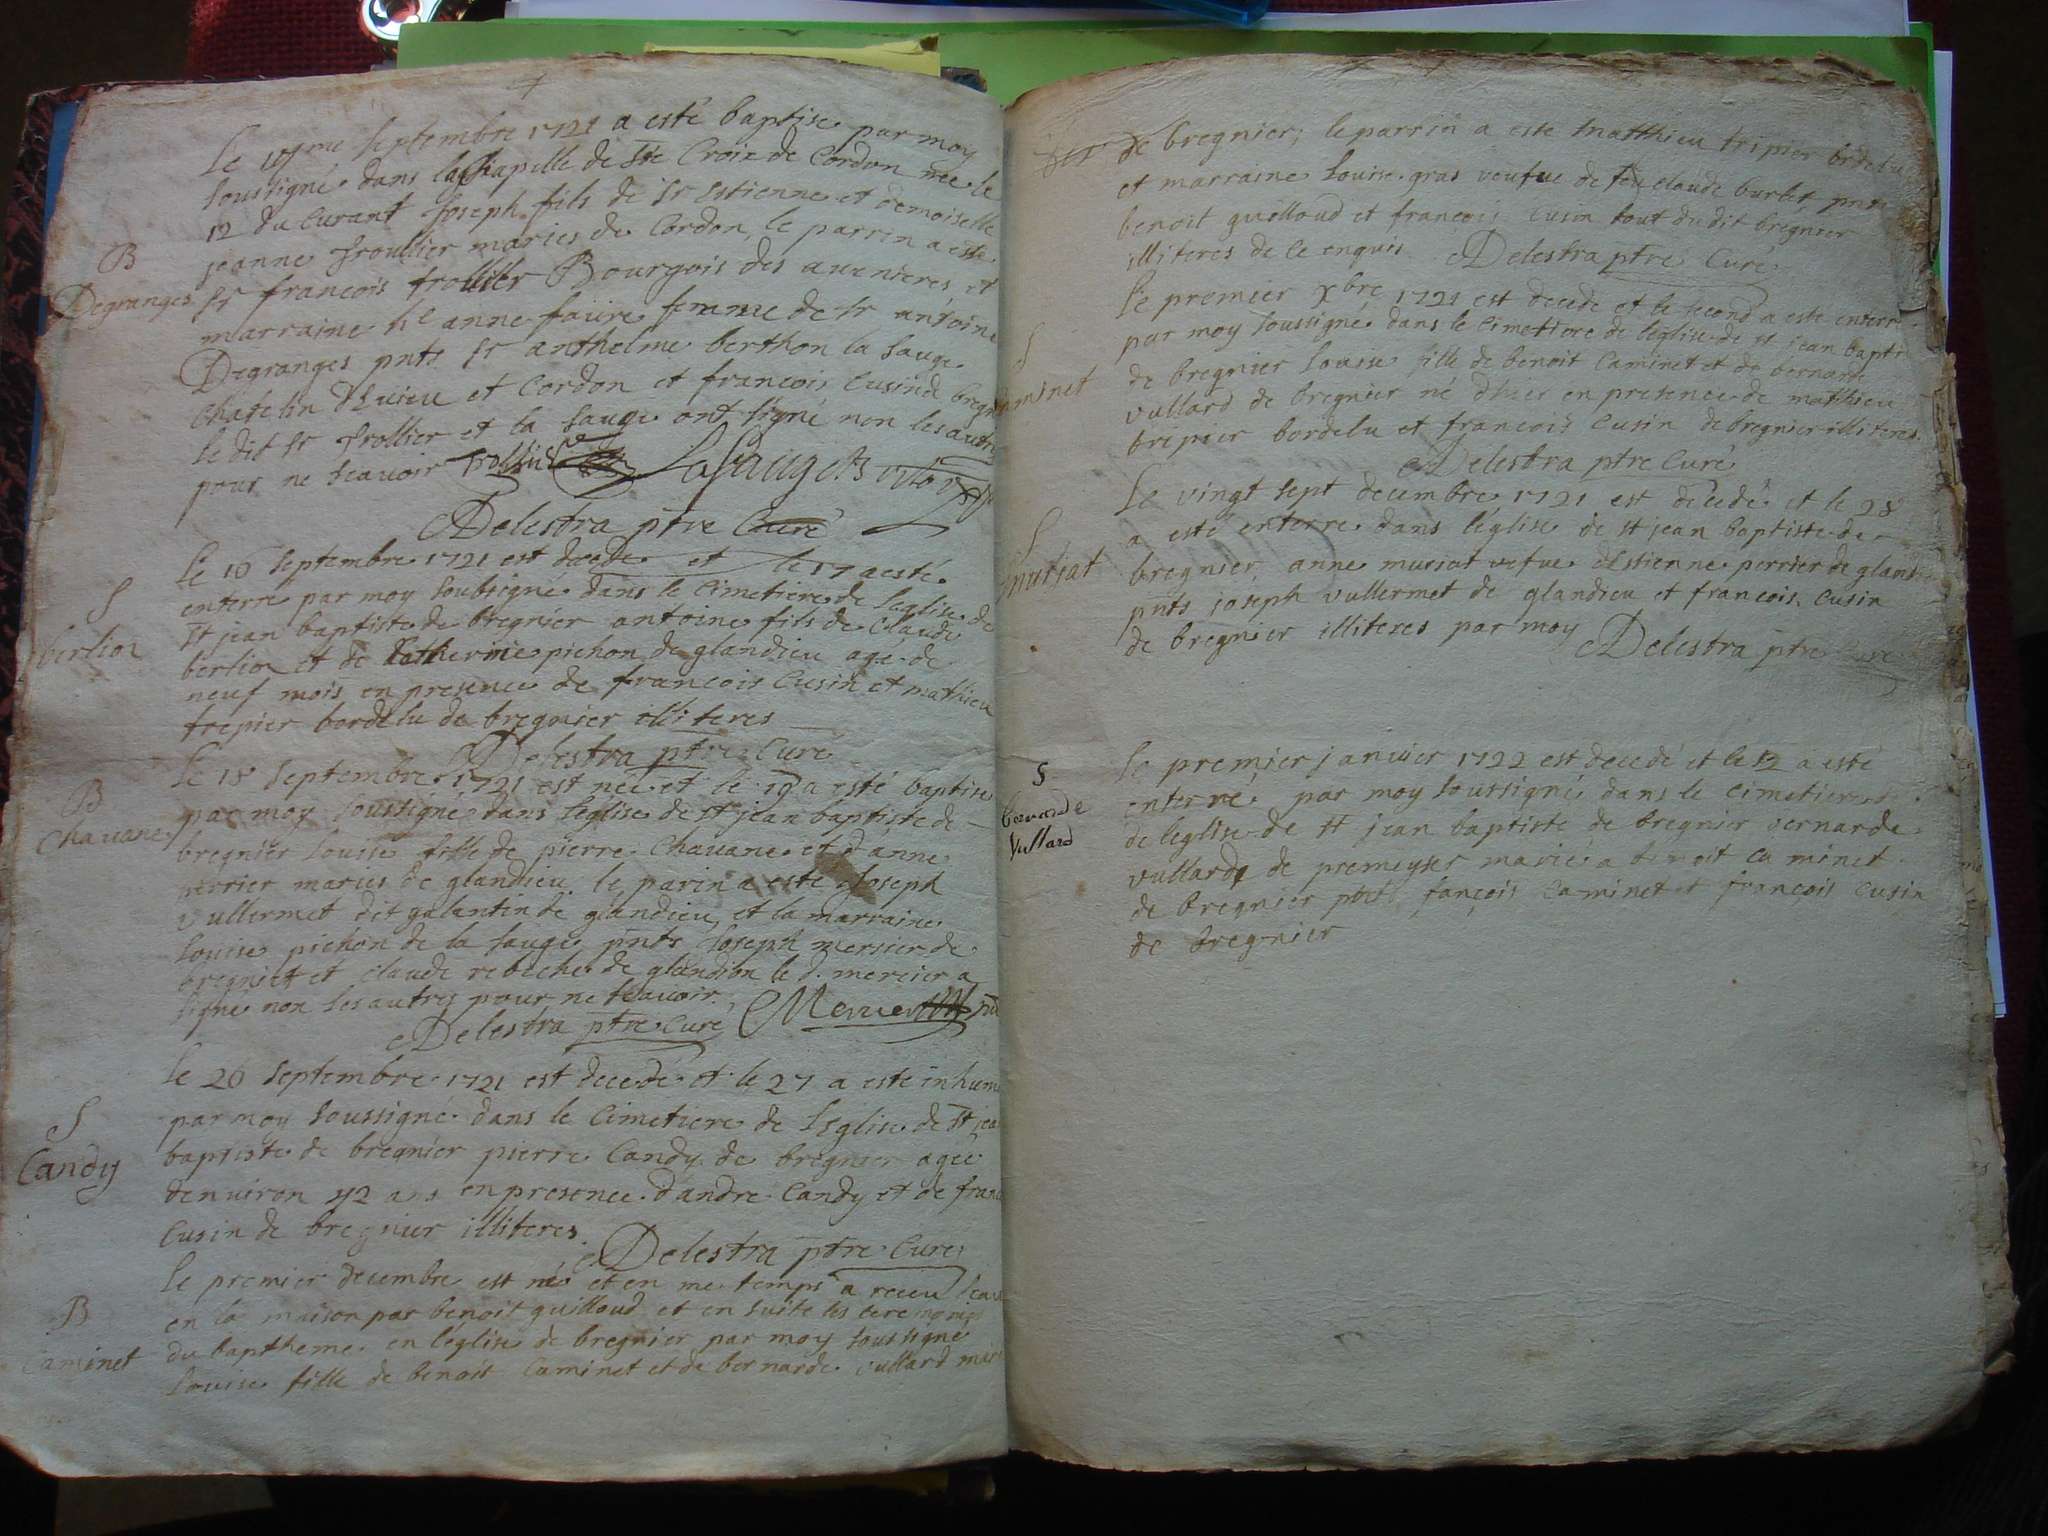 septembre 1721 a esté baptisé par moy
soussigné dans la chapelle de Ste Croix de Cordon née le
12 du Curant Joseph fils de Sr Estienne et demoiselle
jeanne Trouilier mariés de Cordon, le parrin a esté
B
Degranges
Sr francois trollier Bourgois des auenieres et
marraine anne faure femme de Sr antoine
Degranges pnts Sr anthelme berthon la Sauge
Chatelin et Cordon et francois Cusin
Le dit Sr Trollier et La Sauge ont signé non les autres
pour ne scavoir Trollier LaSauge
Delestra ptre Curé
Le 16 septembre 1721 est decede et le 17 a esté
enterré par moy soubsigné dans le Cimetiere de leglise de
S
St jean baptiste de bregnier antoine fils de Claude
berlior
berlior et de Catherine pichon de glandieu agé de
neuf mois en presence de francois Cusin et mathieu
trepier bordelu de bregnier illiteres
Delestra ptre Cure
Le 18 septembre 1721 est née et le 19 a esté baptisé
B
Chauane
par moy soussigné dans leglise de St jean baptiste de
bregnier Louise fille de pierre Chauane et d'anne
perrier mariés de glandieu le parin a esté Joseph
vullermet dit galantin de glandieu, et la marraine
Louise pichon de la sauge pnts Joseph mersier de
bregnier et claude rebeche de glandieu le d. mercier a
signé non les autres pour ne scavoir
Delestra ptre Curé Mercier
Le 26 septembre 1721 est decedé et le 27 a este inhumé
S
par moy soussigné dans le Cimetiere de Leglise de St jean
Candy
baptiste de bregnier pierre Candy de bregnier agee
denuiron 42 ans en presence dandre Candy et de franc
Cusin de bregnier illiteres
Delestra ptre Cure
Le premier decembre est né et en me temps a receu Leau
B
en la maison par benoit guilloud et en suite les ceremonies
Caminet
du baptheme en leglise de bregnier par moy soussigné
Louise fille de benoit Caminet et de bernarde vullard mar
de bregnier; le parrin a este matthieu tripier bordelu
et marraine Louise gras veufue de feu claude burlet pnts
benoit guilloud et francois Cusin tout du dit bregnier
illiteres de ce enquis Delestra ptre Curé
Le premier Xbre 1721 est decede et le second a este enterr
S
par moy soussigné dans le Cimetiere de leglise de St jean bapti
Caminet
de bregnier Louise fille de benoit Caminet et de bernarde
vullard de bregnier né d'hier en presence de matthieu
tripier bordelu et francois Cusin de bregnier illiteres
Delestra ptre Curé
Le vingt sept decembre 1721 est decedé et le 28
S
a esté enterre dans leglise de St jean baptiste de
muriat
bregnier anne muriat vefue destienne perrier de glandi
pnts joseph vullermet de glandieu et francois Cusin
de bregnier illiteres par moy
Delestra ptre Cure
S
Le premier janvier 1722 est decedé et le 2 a esté
Bernarde
Vullard
enterré par moy soussigné dans le Cimetiere
de leglise de St jean baptiste de bregnier bernarde
vullarde de premeyser marié a benoit Caminet
de bregnier pnt françois Caminet et françois Cusin
de bregnier